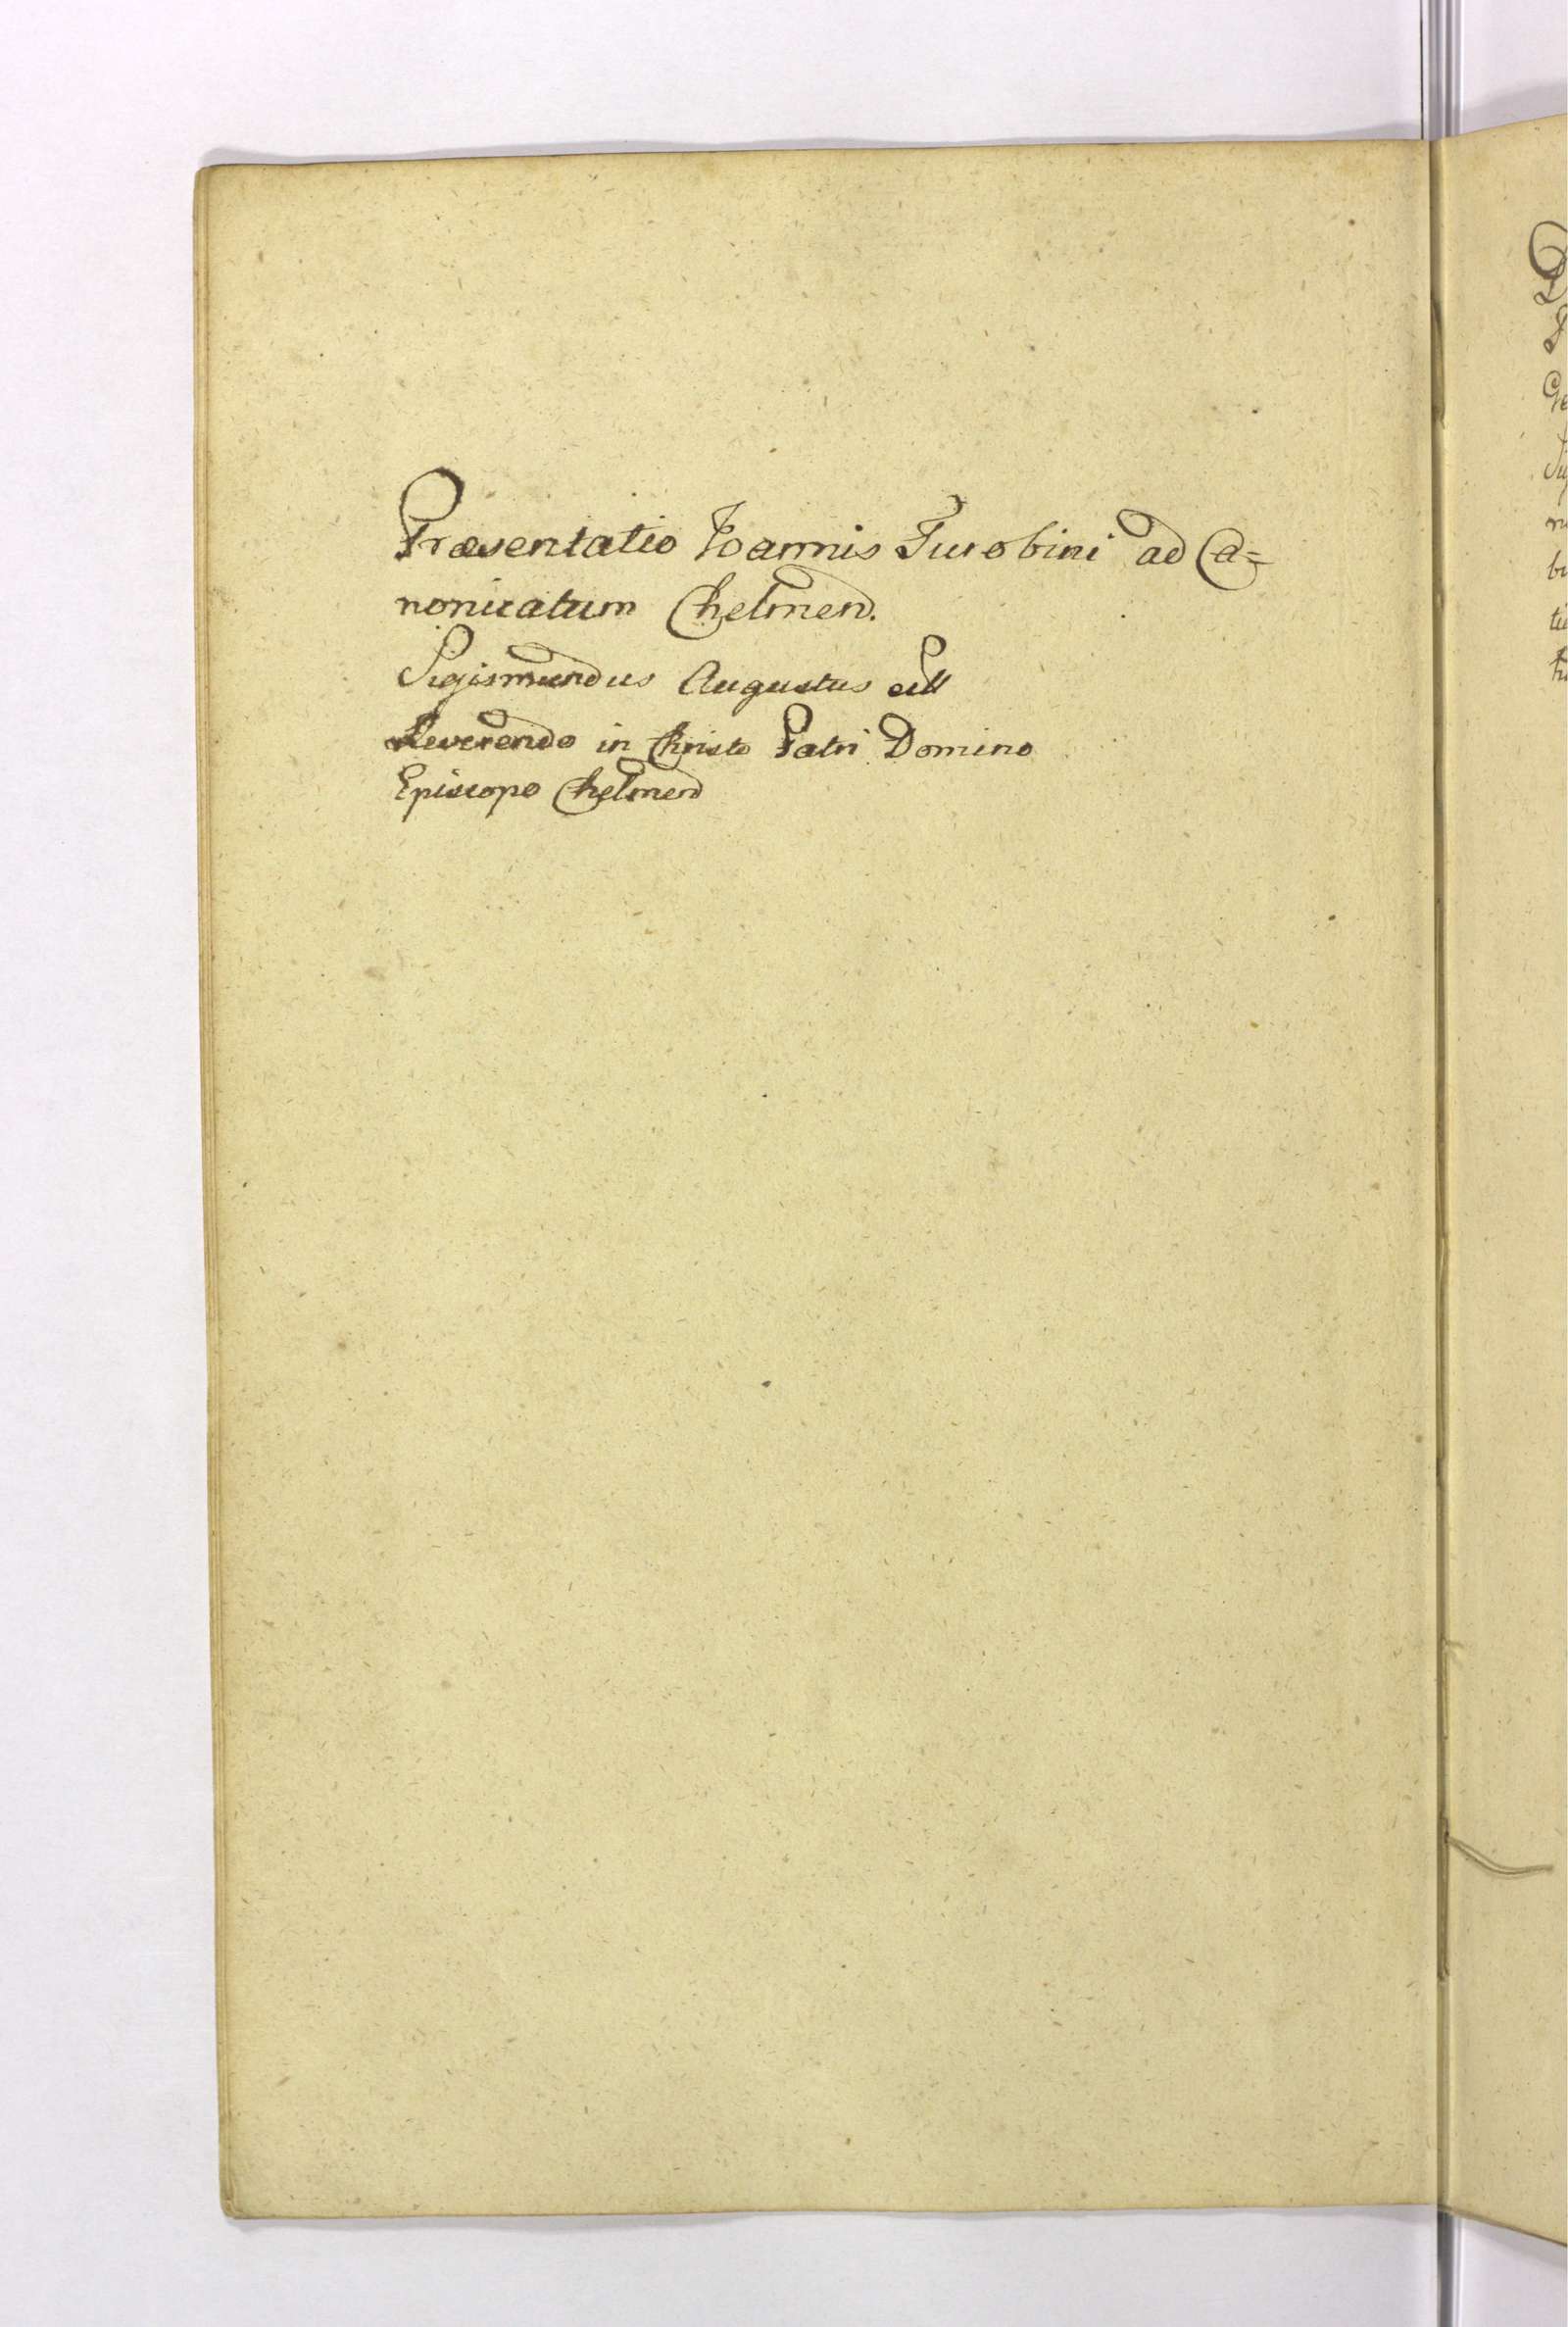 Præsentatio Joannis Turobini ad Ca=
nonicatum Chelmen.
Sigismundus Augustus
Reverendo in Christo Patri Domino
Episcopo Chelmen